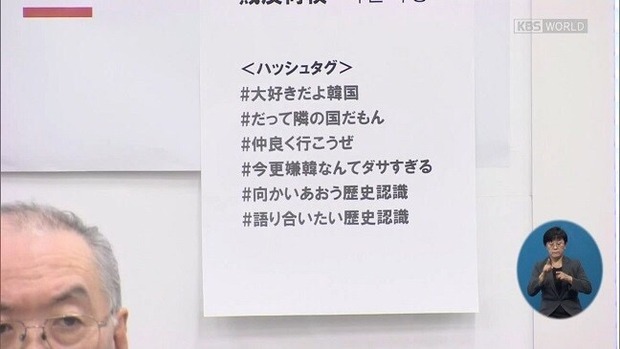 KBS WORLD
＜ハッシュタグ＞
#大好きだよ韓国
#だって隣の国だもん
#仲良く行こうぜ
#今更嫌韓なんてダサすぎる
#向かいあおう歴史認識
#語り合いたい歴史認識